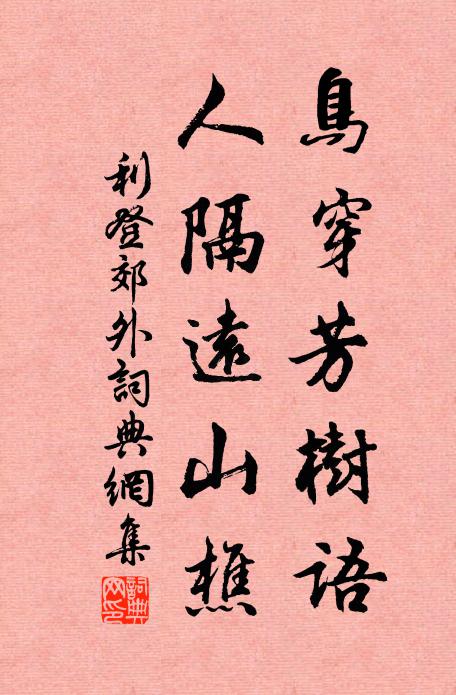 鳥穿芳樹語
人隔遠山樵
利登郊外詞典網集
詞典網印